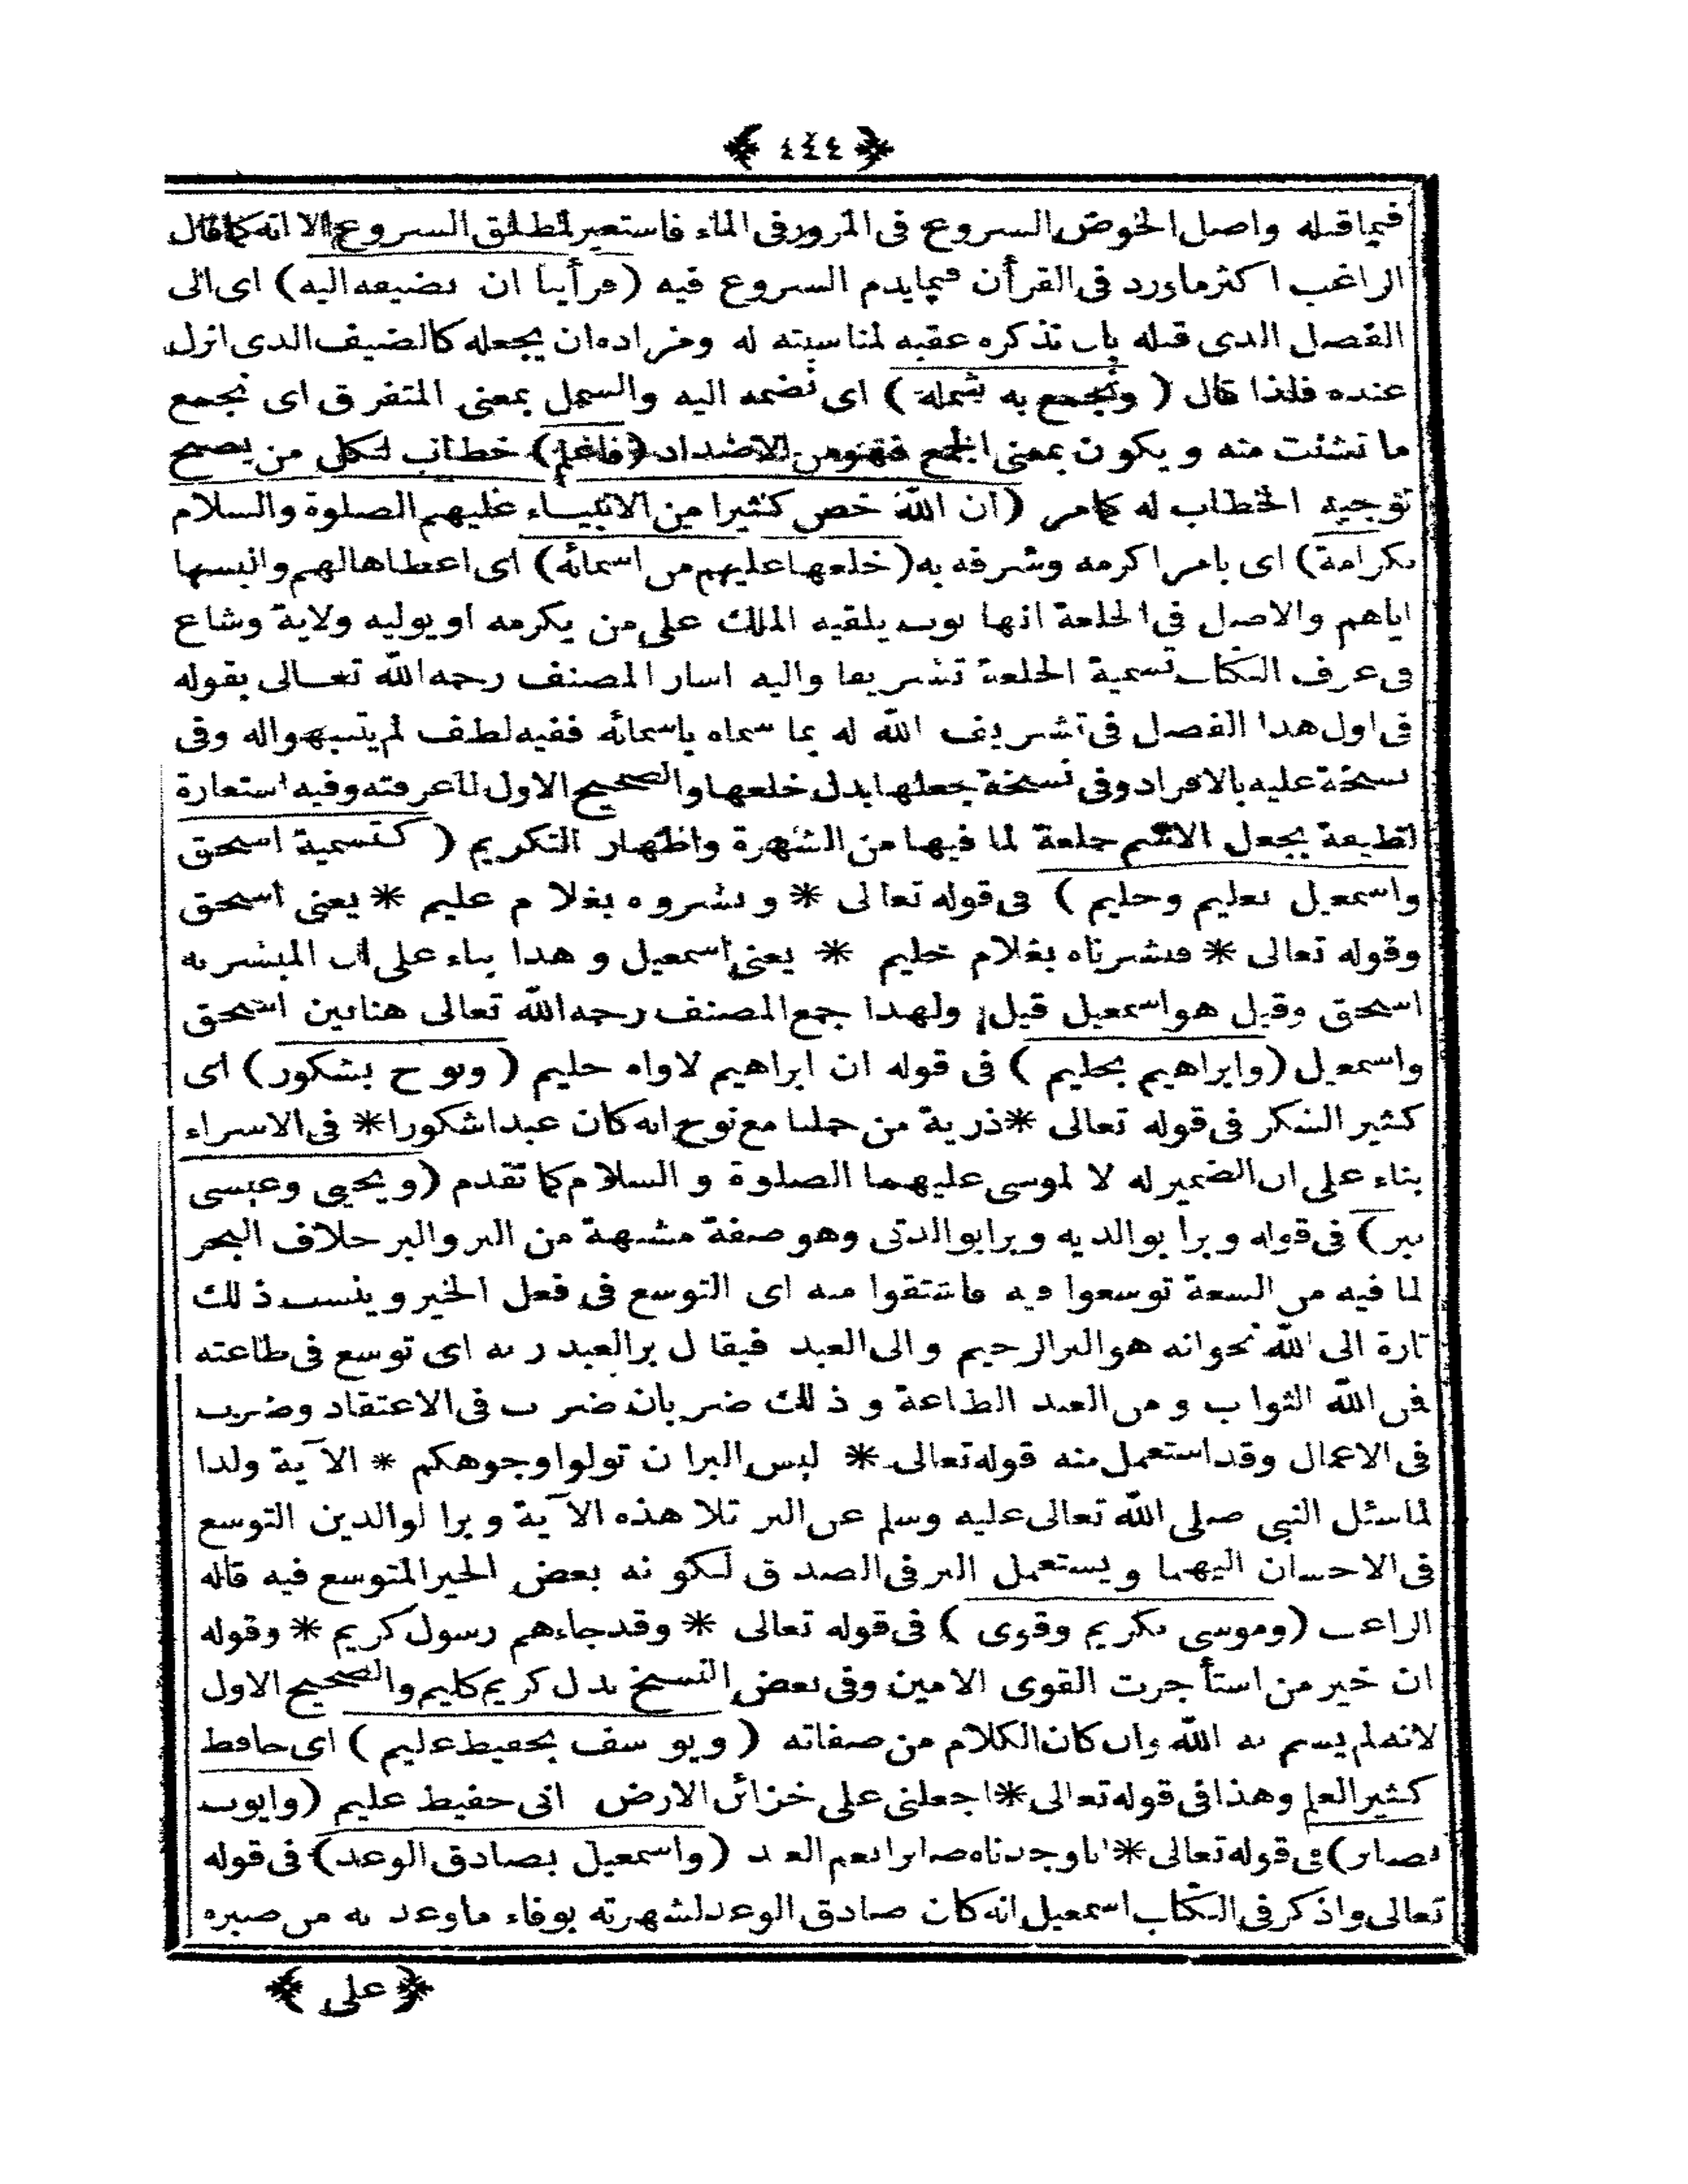 ﴿ ٤٤٤ ﴾
فيما قبله واصل الخوض السروع فى المرور فى الماء فاستعير لمطلق السروع الا انه كما قال
الراغب اكثر ماورد فى القرأن فيما يذم السروع فيه (فرأينا ان نضيفه اليه) اى الى
الفصل الذى قبله بان نذكره عقبه لمناسبته له ومراده ان يجعله كالضيف الذى انزل
عنده فلذا قال (ونجمع به شمله) اى نضمه اليه والشمل بمعنى المتفرق اى نجمع
ما تشتت منه ويكون بمعنى الجمع فهو من الاضداد (فاعلم) خطاب لكل من يصح
توجيه الخطاب له كما مر (ان الله خص كثيرا من الانبياء عليهم الصلوة والسلام
بكرامة) اى بامر اكرمه وشرفه به (خلعها عليهم من اسمائه) اى اعطاها لهم والبسها
اياهم والاصل فى الخلعة انها ثوب يلقيه الملك على من يكرمه او يوليه ولاية وشاع
فى عرف الكتاب تسمية الخلعة تشريفا واليه اشار المصنف رحمه الله تعالى بقوله
فى اول هذا الفصل فى تشريف الله له بما سماه باسمائه ففيه لطف لم يتنبهوا له وفى
نسخة عليه بالافراد وفى نسخة جعلها بدل خلعها والصحيح الاول لما عرفته وفيه استعارة
لطيفة بجعل الاسم خلعة لما فيها من الشهرة واظهار التكريم (كتسمية اسحق
واسمعيل بعليم وحليم) فى قوله تعالى * وبشروه بغلام عليم * يعنى اسحق
وقوله تعالى * فبشرناه بغلام حليم * يعنى اسمعيل وهذا بناء على ان المبشر به
اسحق وقيل هو اسمعيل قيل ولهذا جمع المصنف رحمه الله تعالى هنا بين اسحق
واسمعيل (وابراهيم بحليم) فى قوله ان ابراهيم لاواه حليم (ونوح بشكور) اى
كثير الشكر فى قوله تعالى * ذرية من حملنا مع نوح انه كان عبدا شكورا * فى الاسراء
بناء على ان الضمير له لا لموسى عليهما الصلوة والسلام كما تقدم (ويحيى وعيسى
ببر) فى قوله وبرا بوالديه وبرا بوالدتى وهو صفة مشبهة من البر والبر خلاف البحر
لما فيه من السعة توسعوا فيه فاشتقوا منه اى التوسع فى فعل الخير وينسب ذلك
تارة الى الله نحو انه هو البر الرحيم والى العبد فيقال بر العبد ربه اى توسع فى طاعته
فمن الله الثواب ومن العبد الطاعة وذلك ضربان ضرب فى الاعتقاد وضرب
فى الاعمال وقد استعمل منه قوله تعالى * ليس البر ان تولوا وجوهكم * الآية ولذا
لما سئل النبى صلى الله تعالى عليه وسلم عن البر تلا هذه الآية وبر الوالدين التوسع
فى الاحسان اليهما ويستعمل البر فى الصدق لكونه بعض الخير المتوسع فيه قاله
الراغب (وموسى بكريم وقوى) فى قوله تعالى * وقد جاءهم رسول كريم * وقوله
ان خير من استأجرت القوى الامين وفى بعض النسخ بدل كريم كليم والصحيح الاول
لانه لم يسم به الله وان كان الكلام من صفاته (ويوسف بحفيظ عليم) اى حافظ
كثير العلم وهذا فى قوله تعالى * اجعلنى على خزائن الارض انى حفيظ عليم (وايوب
بصابر) فى قوله تعالى * انا وجدناه صابرا نعم العبد (واسمعيل بصادق الوعد) فى قوله
تعالى واذكر فى الكتاب اسمعيل انه كان صادق الوعد لشهرته بوفاء ما وعد به من صبره
﴿ على ﴾